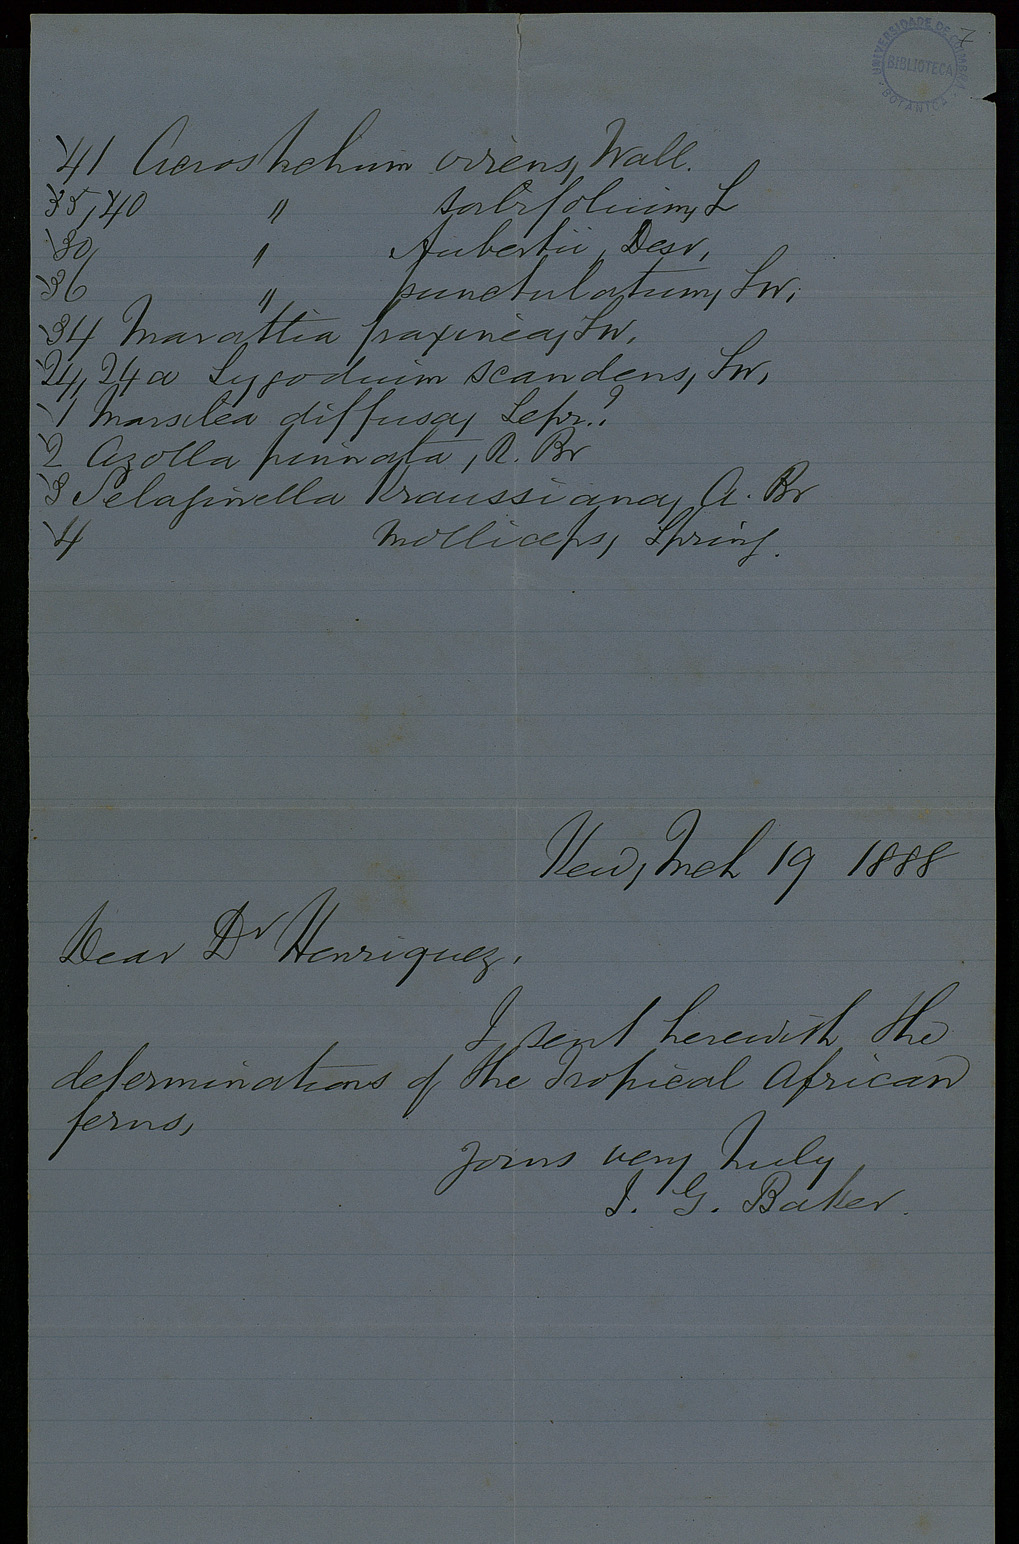 7
UNIVERSIDADE DE COIMBRA
BIBLIOTECA
BOTANICA
41 Acrostichum virens, Wall.
35, 40 " sorbifolium, L
30, " Aubertii, Desv,
36 " punctulatum, Sw,
34 Marattia fraxinea, Sw,
24, 24a Lygodium scandens, Sw,
1 Marsilea diffusa, Lepr.?
2 Azolla pinnata, R. Br
3 Selaginella Kraussiana, A. Br
4 molliceps, Spring.
Kew, Mch 19 1888
Dear Dr Henriquez,
I sent herewith the
determinations of the Tropical African
ferns,
Yours very truly
J. G. Baker.